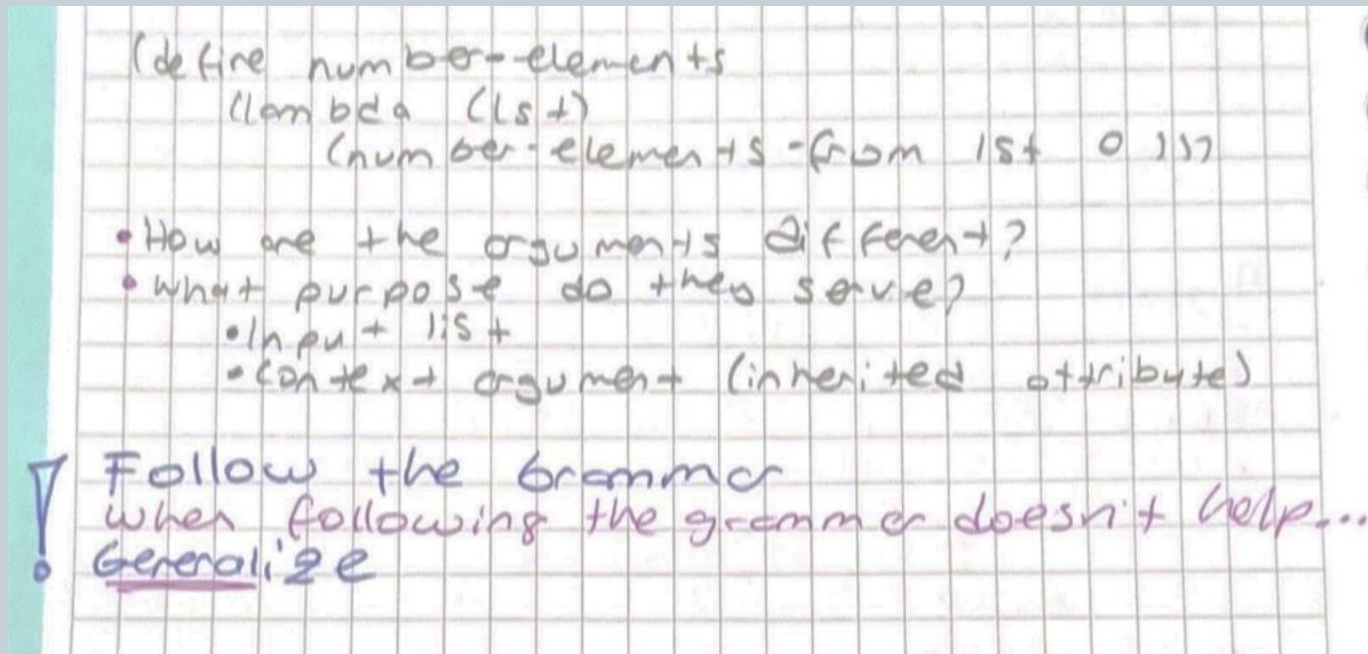 (define number-elements
(lambda (lst)
(number-elements-from lst 0 )))
• How are the arguments different?
• What purpose do they serve?
• Input list
• Context argument (inherited attribute)
! Follow the Grammar
when following the grammar doesn't help...
Generalize